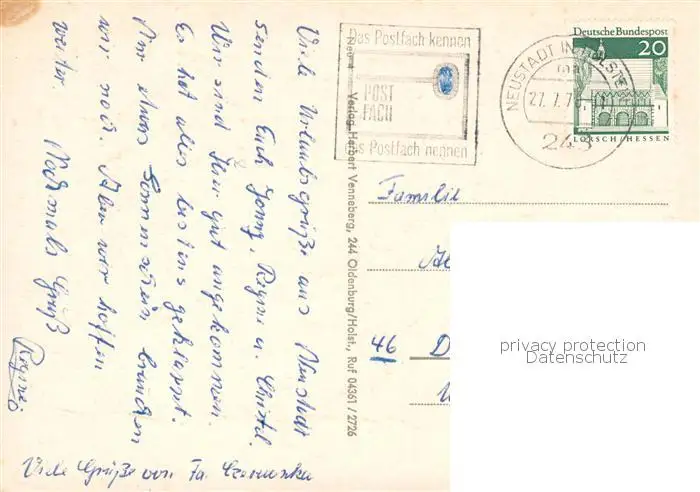 Viele Urlaubsgrüße aus Neustadt
senden Euch Jonny, Regine u. Christel.
Wir sind hier gut angekommen.
Es hat alles bestens geklappt.
Nur etwas Sonnenschein brauchen
wir noch. Aber wir hoffen
weiter. Nochmals Grüß
Regine.
Viele Grüße von Fa.
Neu 4 Verlag Herbert Venneberg, 244 Oldenburg/Holst., Ruf 04361 / 2726
Das Postfach kennen
POST
FACH
Das Postfach nennen
NEUSTADT IN HOLSTEIN
27.7.7
243
Deutsche Bundespost
20
LORSCH/HESSEN
Familie
46 D
privacy protection
Datenschutz